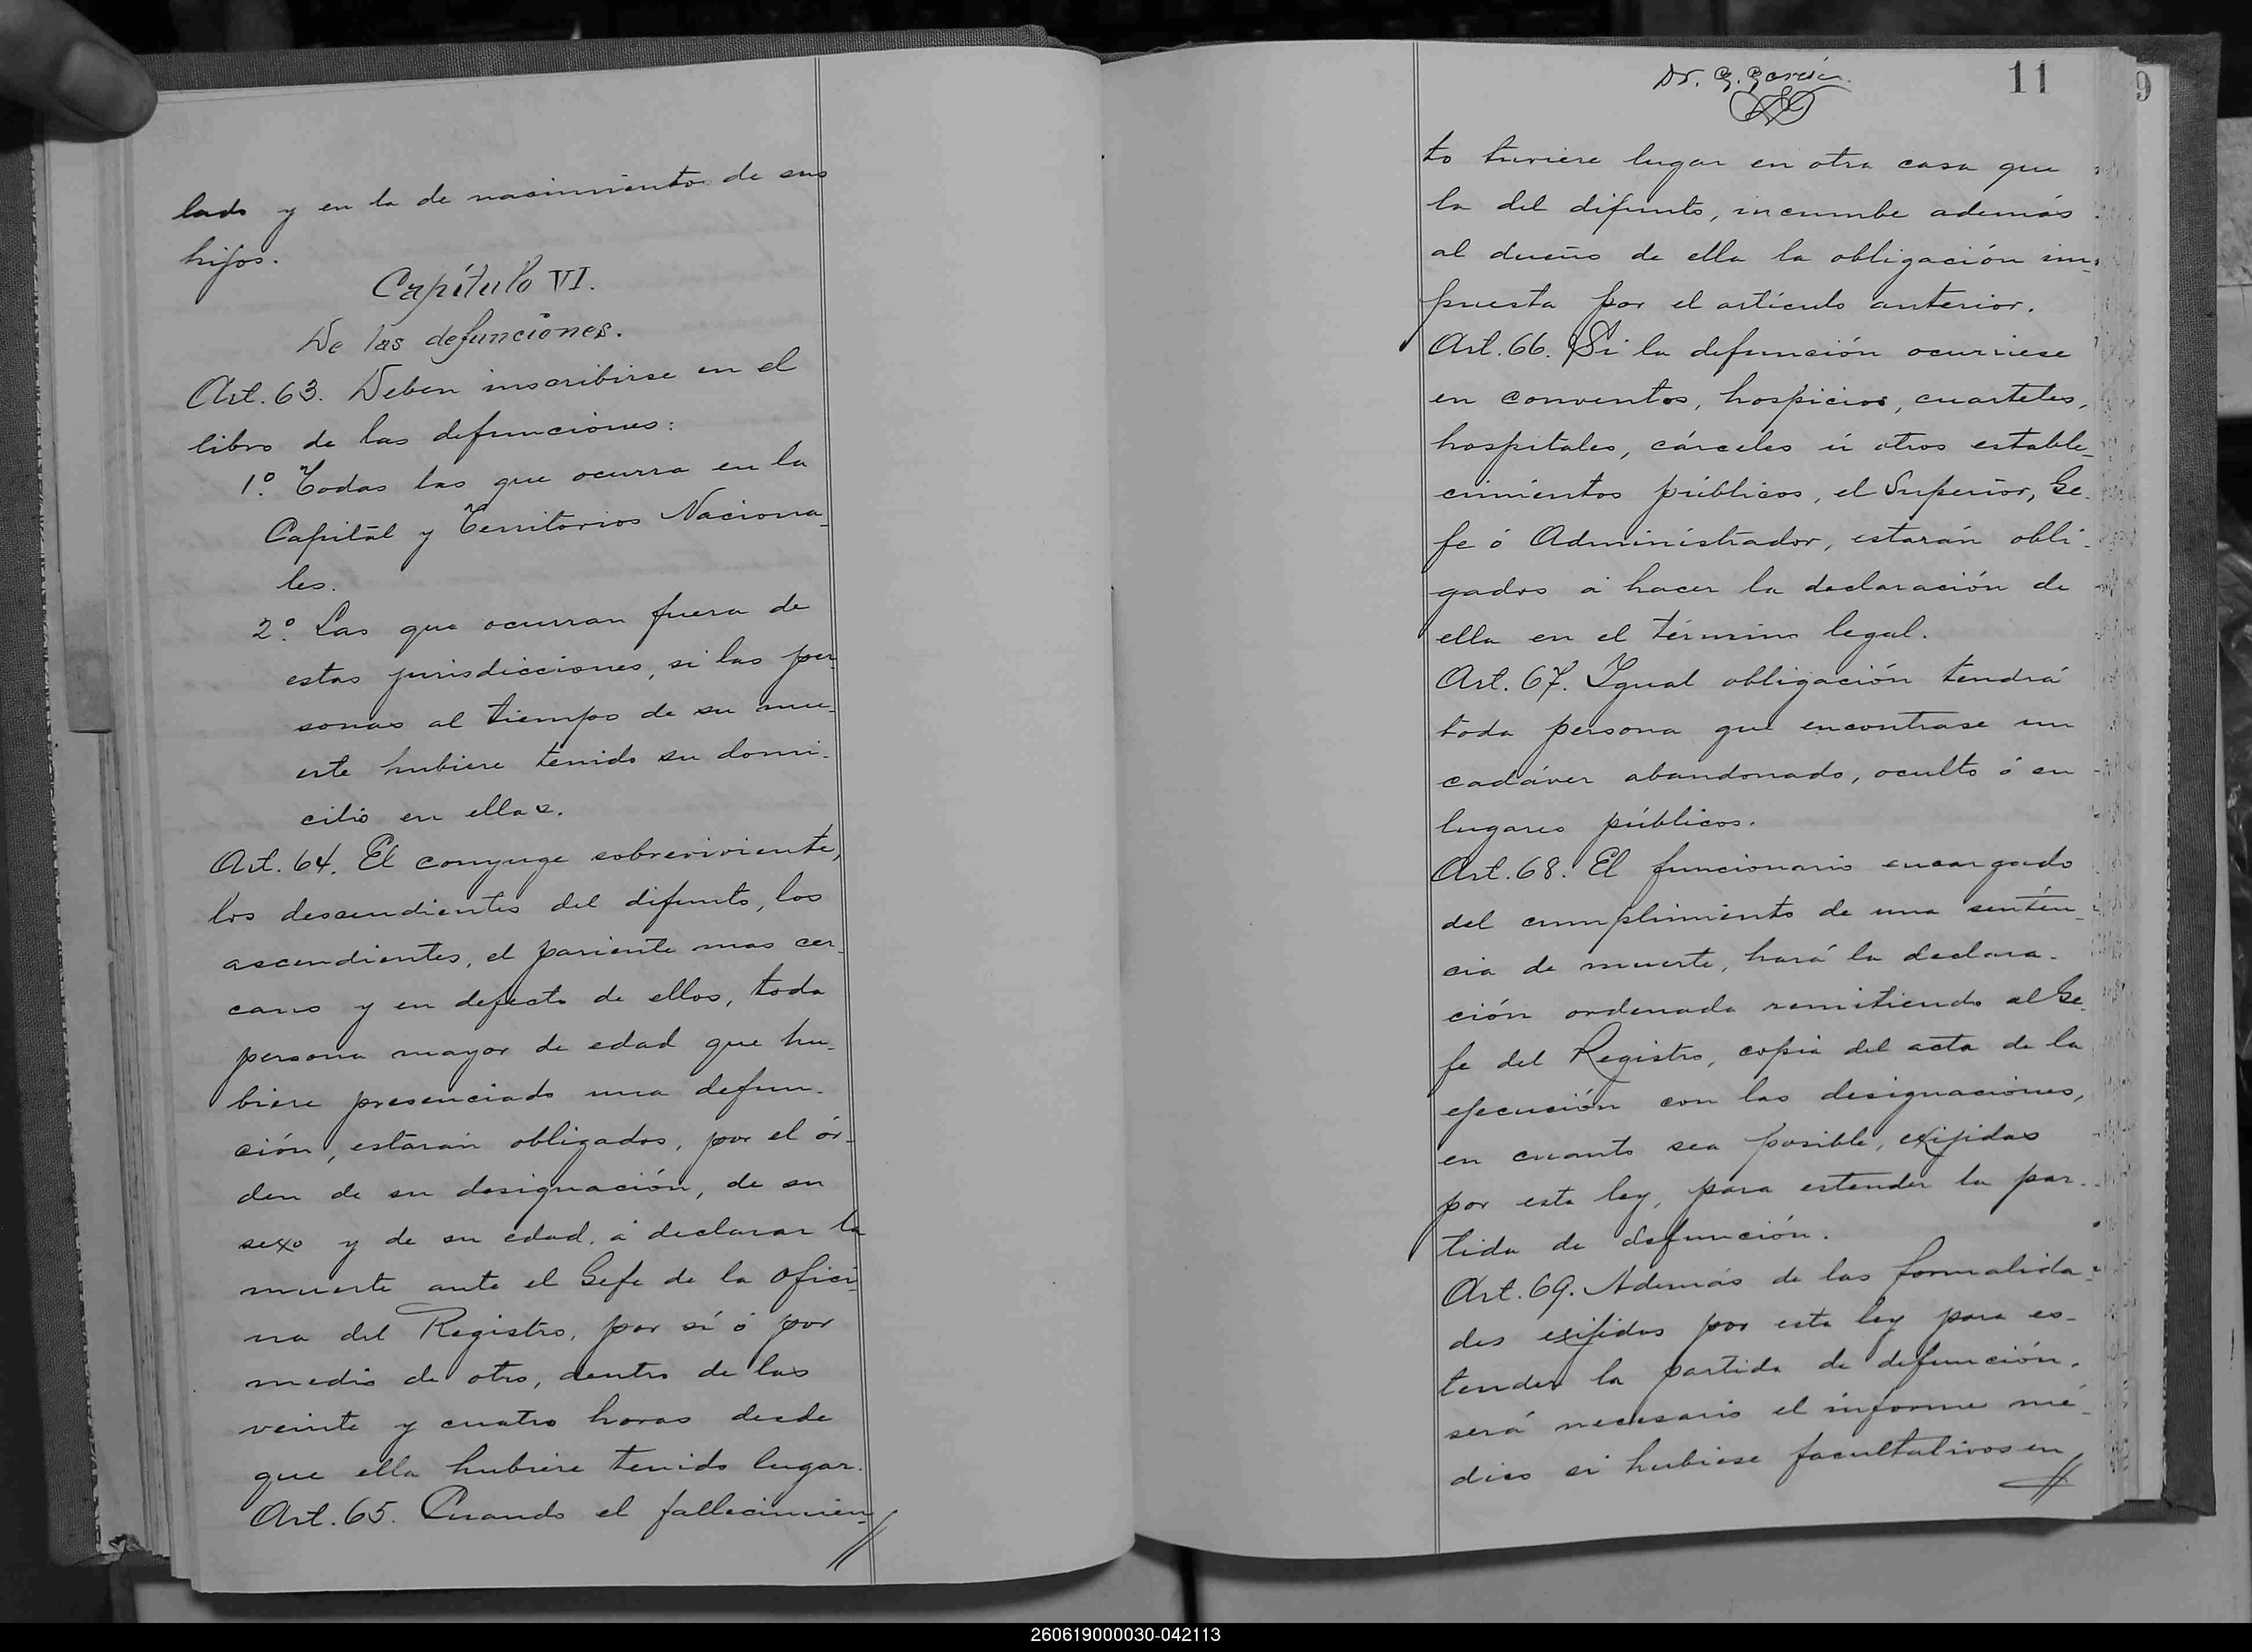 lado y en la de nacimiento de sus
hijos.
Capítulo VI.
De las defunciones.
Art. 63. Deben inscribirse en el
libro de las defunciones:
1º. Todas las que ocurra en la
Capital y Territorios Naciona-
les.
2º. Las que ocurran fuera de
estas jurisdicciones, si las per-
sonas al tiempo de su mu-
erte hubiere tenido su domi-
cilio en ellas.
Art. 64. El conyuge sobreviviente,
los descendientes del difunto, los
ascendientes, el pariente mas cer-
cano y en defecto de ellos, toda
persona mayor de edad que hu-
biere presenciado una defun-
ción, estarán obligados, por el ór-
den de su designación, de su
sexo y de su edad, á declarar la
muerte ante el Gefe de la ofici-
na del Registro, por sí ó por
medio de otro, dentro de las
veinte y cuatro horas desde
que ella hubiere tenido lugar.
Art. 65. Cuando el fallecimien-
Dr. G. García
11
9
to tuviere lugar en otra casa que
la del difunto, incumbe además
al dueño de ella la obligación im-
puesta por el artículo anterior.
Art. 66. Si la defunción ocurriese
en conventos, hospicios, cuarteles,
hospitales, cárceles ú otros estable-
cimientos públicos, el Superior, Ge-
fe ó Administrador, estarán obli-
gados á hacer la declaración de
ella en el término legal.
Art. 67. Igual obligación tendrá
toda persona que encontrase un
cadáver abandonado, oculto ó en
lugares públicos.
Art. 68. El funcionario encargado
del cumplimiento de una senten-
cia de muerte, hará la declara-
ción ordenada remitiendo al Ge-
fe del Registro, copia del acta de la
ejecución con las designaciones,
en cuanto sea posible, exijidas
por esta ley, para estender la par-
tida de defunción.
Art. 69. Además de las formalida-
des exijidas por esta ley para es-
tender la partida de defunción,
será necesario el informe mé-
dico si hubiese facultativos en
260619000030-042113